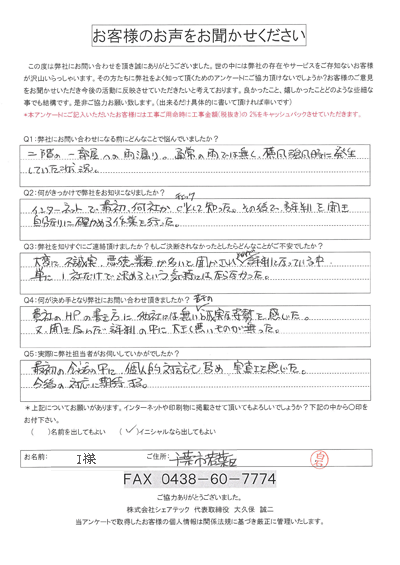 お客様のお声をお聞かせください
この度は弊社にお問い合わせを頂き誠にありがとうございました。世の中には弊社の存在やサービスをご存知ないお客様
が沢山いらっしゃいます。その方たちに弊社をよく知って頂くためのアンケートにご協力頂けないでしょうか?お客様のご意見
をお聞かせいただき今後の活動に反映させていただきたいと考えております。良かったこと、嬉しかったことどのような些細な
事でも結構です。是非ご協力お願い致します。(出来るだけ具体的に書いて頂ければ幸いです)
*本アンケートにご記入いただいたお客様には工事ご用命時に工事金額(税抜き)の2%をキャッシュバックさせていただきます。
Q1:弊社にお問い合わせになる前にどんなことで悩んでいましたか?
二階の一部屋への雨漏り。通常の雨では無く、暴風雨時に発生
していた状況。
Q2:何がきっかけで弊社をお知りになりましたか?
インターネットで最初、何社か
チェックして知った。その後で、評判を聞き
自分なりに確かめる作業を行った。
Q3:弊社を知りすぐにご連絡頂けましたか?もしご決断されなかったとしたらどんなことがご不安でしたか?
大変に不誠実、悪徳業者が多いと聞かされ、評判になっている中
単に1社だけで決めるという気持にはならなかった。
Q4:何が決め手となり弊社にお問い合わせ頂きましたか?
貴社のHPの書き方に他社には無い誠実な姿勢を感じた。
又、聞き及んだ評判の中に大きく悪いものが無かった。
Q5:実際に弊社担当者がお伺いしていかがでしたか?
最初の会話の中に、個人的対応として
実直と感じた。
今後の対応に期待する。
*上記についてお願いがあります。インターネットや印刷物に掲載させて頂いてもよろしいでしょうか?下記の中から○印を
お付け下さい。
( )名前を出してもよい (✓)イニシャルなら出してもよい
お名前: I様 ご住所: 千葉市若葉区
FAX 0438-60-7774
ご協力ありがとうございました。
株式会社シェアテック 代表取締役 大久保 誠二
当アンケートで取得したお客様の個人情報は関係法規に基づき厳正に管理いたします。